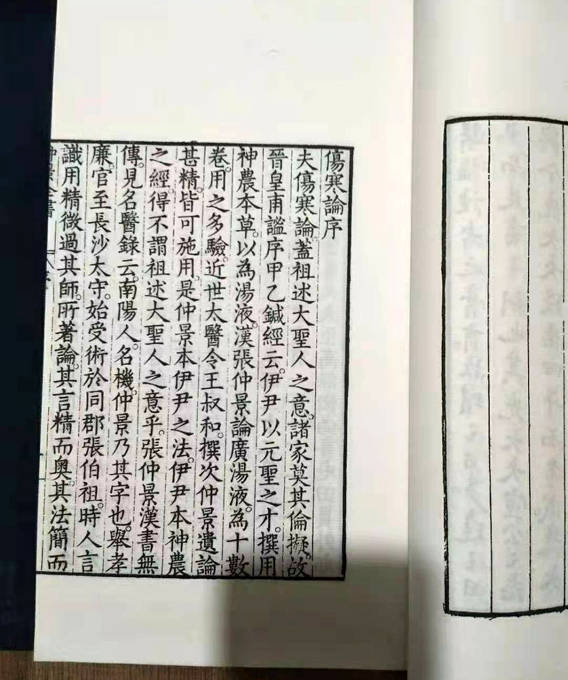 傷寒論序
夫傷寒論。蓋祖述大聖人之意。諸家莫其倫擬。故
晉皇甫謐序甲乙鍼經云。伊尹以元聖之才。撰用
神農本草。以為湯液。漢張仲景論廣湯液。為十數
卷。用之多驗。近世太醫令王叔和。撰次仲景遺論
甚精。皆可施用。是仲景本伊尹之法。伊尹本神農
之經。得不謂祖述大聖人之意乎。張仲景漢書無
傳。見名醫錄云。南陽人。名機。仲景乃其字也。舉孝
廉。官至長沙太守。始受術於同郡張伯祖。時人言。
識用精微過其師。所著論。其言精而奧。其法簡而